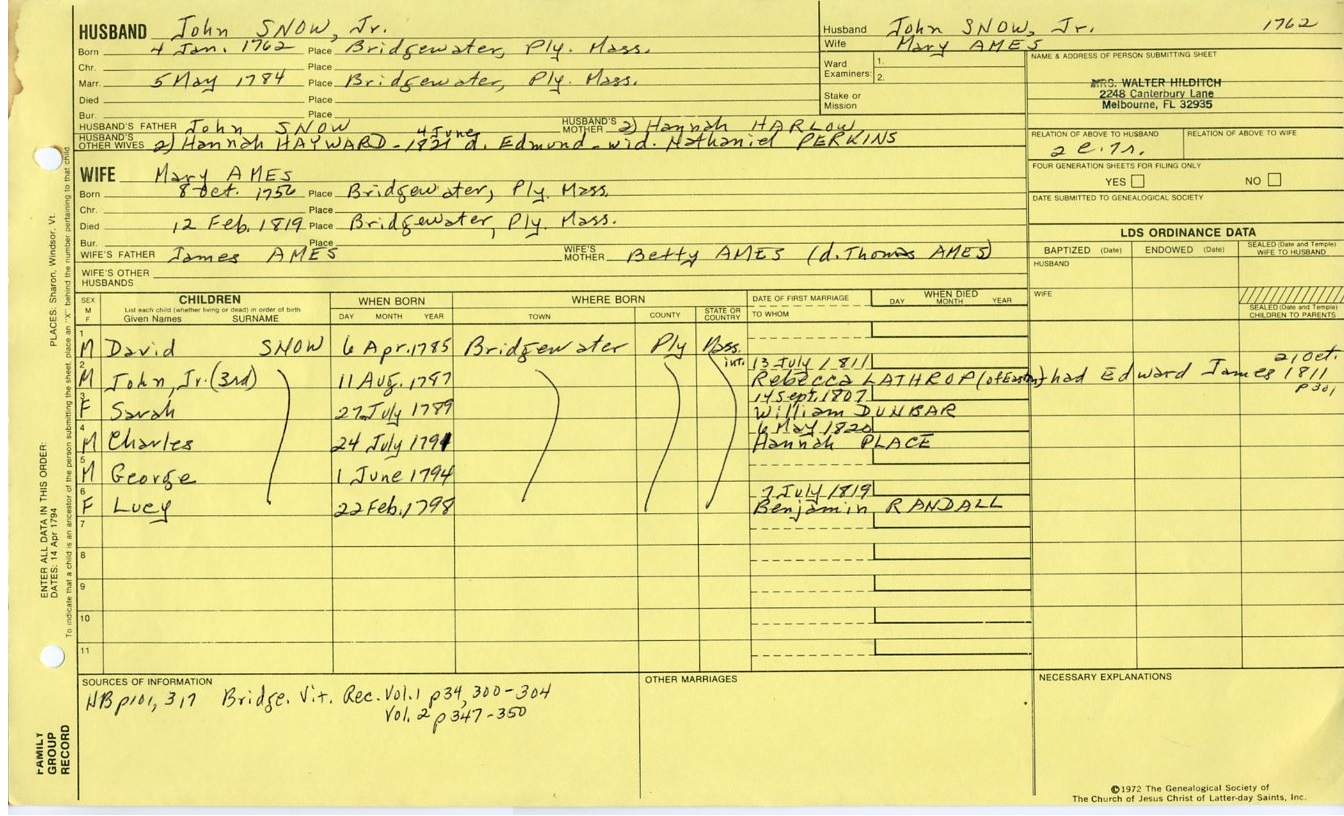 HUSBAND John SNOW, Jr.
Born 4 Jan. 1762 Place Bridgewater, Ply. Mass.
Chr. Place
Marr. 5 May 1784 Place Bridgewater, Ply. Mass.
Died Place
Bur. Place
HUSBAND'S FATHER John SNOW HUSBAND'S MOTHER 2) Hannah HARLOW
HUSBAND'S OTHER WIVES 2) Hannah HAYWARD - 4 June 1821 d. Edmond - wid. Nathaniel PERKINS
Husband John SNOW, Jr. 1762
Wife Mary AMES
Ward Examiners: 1.
2.
Stake or Mission
NAME & ADDRESS OF PERSON SUBMITTING SHEET
MRS. WALTER HILDITCH
2248 Canterbury Lane
Melbourne, FL 32935
RELATION OF ABOVE TO HUSBAND RELATION OF ABOVE TO WIFE
FOUR GENERATION SHEETS FOR FILING ONLY
YES NO
DATE SUBMITTED TO GENEALOGICAL SOCIETY
WIFE Mary AMES
Born 8 Oct. 1756 Place Bridgewater, Ply. Mass.
Chr. Place
Died 12 Feb. 1819 Place Bridgewater, Ply. Mass.
Bur. Place
WIFE'S FATHER James AMES WIFE'S MOTHER Betty AMES (d. Thomas AMES)
WIFE'S OTHER HUSBANDS
LDS ORDINANCE DATA
BAPTIZED (Date) ENDOWED (Date) SEALED (Date and Temple) WIFE TO HUSBAND
HUSBAND
WIFE
SEALED (Date and Temple) CHILDREN TO PARENTS
SEX M F CHILDREN List each child (whether living or dead) in order of birth Given Names SURNAME WHEN BORN DAY MONTH YEAR WHERE BORN TOWN COUNTY STATE OR COUNTRY DATE OF FIRST MARRIAGE TO WHOM WHEN DIED DAY MONTH YEAR
1 M David SNOW 6 Apr. 1785 Bridgewater Ply Mass.
2 M John, Jr. (3rd) 11 Aug. 1787 int. 13 July 1811 Rebecca LATHROP (of Easton) had Edward James 21 Oct. 1811 p301
3 F Sarah 27 July 1789 14 Sept. 1807 William DUNBAR
4 M Charles 24 July 1791 6 May 1820 Hannah PLACE
5 M George 1 June 1794
6 F Lucy 22 Feb. 1798 7 July 1819 Benjamin RANDALL
7
8
9
10
11
SOURCES OF INFORMATION
NB p101, 317 Bridge. Vit. Rec. Vol. 1 p34, 300-304
Vol. 2 p347-350
OTHER MARRIAGES
NECESSARY EXPLANATIONS
©1972 The Genealogical Society of
The Church of Jesus Christ of Latter-day Saints, Inc.
FAMILY GROUP RECORD
ENTER ALL DATA IN THIS ORDER:
DATES: 14 Apr 1794 PLACES: Sharon, Windsor, Vt.
To indicate that a child is an ancestor of the person submitting the sheet, place an "X" behind the number pertaining to that child.